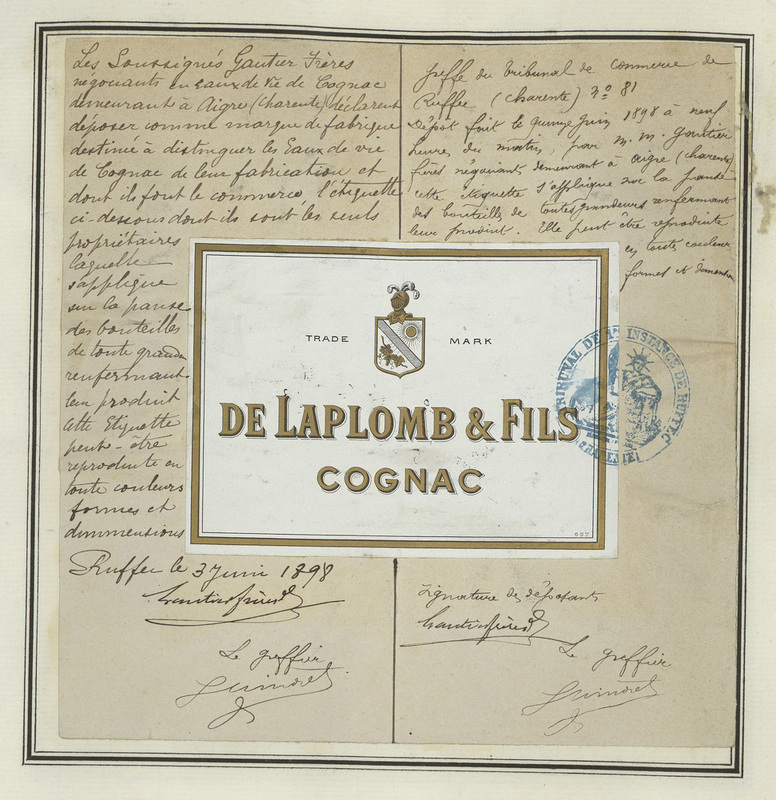 Les Soussignés Gautier Frères
négociants en eaux de vie de Cognac
demeurant à Aigre (Charente) déclarent
déposer comme marque de fabrique
destiné à distinguer les Eaux de vie
de Cognac de leur fabrication et
dont ils font le commerce, l'étiquette
ci-dessous dont ils sont les seuls
propriétaires
laquelle
s'applique
sur la panse
des bouteilles
de toute grandeur
renfermant
leur produit
Cette Etiquette
peut-être
reproduite en
toute couleurs
formes et
dimmensions
Ruffec le 3 juin 1898
Gautier frères
Le greffier
Greffe du Tribunal de Commerce de
Ruffec (Charente) No 81
Dépôt fait le quinze Juin 1898 à neuf
heures du matin, par M. M. Gautier
frères négociants demeurant à Aigre (Charente)
cette étiquette s'applique sur la panse
des bouteilles de toutes grandeurs renfermant
leur produit. Elle peut être reproduite
en toute couleur
formes et dimension
TRADE MARK
DE LAPLOMB & FILS
COGNAC
TRIBUNAL DE 1re INSTANCE DE RUFFEC
(CHARENTE)
Signature des déposants
Gautier frères
Le greffier